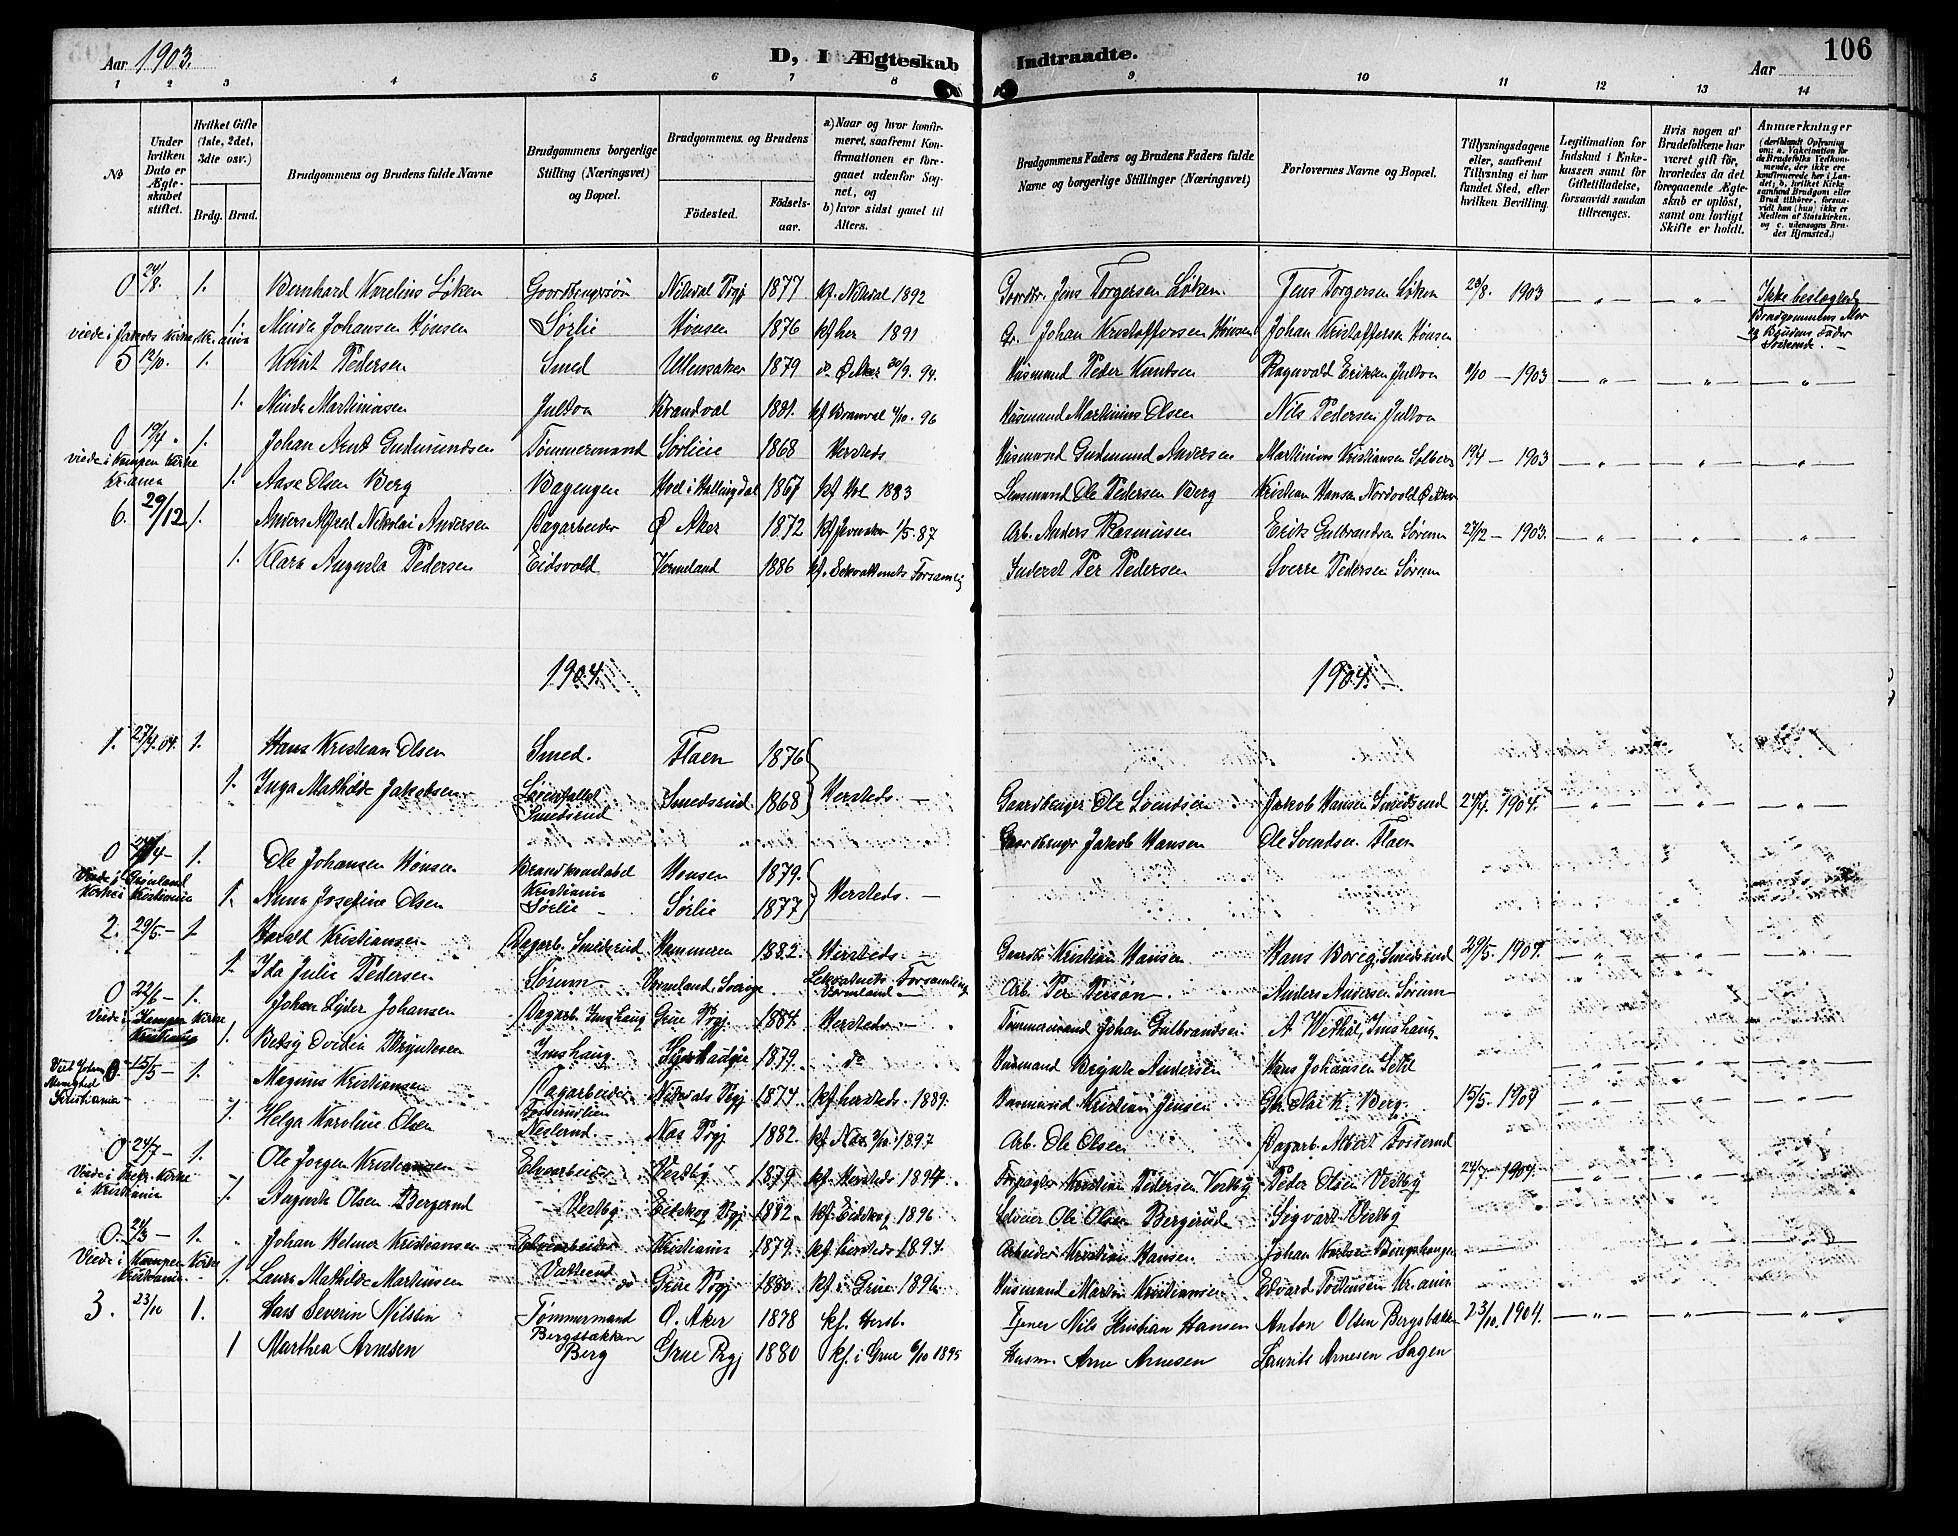 Aar 1903.
D, I Ægteskab Indtraadte.
106
Aar
1 2 3 4 5 6 7 8 9 10 11 12 13 14
No
Under hvilken Dato er Ægteskabet stiftet.
Hvilket Gifte (1ste, 2det, 3dte osv.)
Brdg. Brud.
Brudgommens og Brudens fulde Navne
Brudgommens borgerlige Stilling (Næringsvei) og Bopæl.
Brudgommens og Brudens
Fødested. Fødselsaar.
a) Naar og hvor konfirmeret, saafremt Konfirmationen er foregaaet udenfor Sognet, og
b) hvor sidst gaaet til Alters.
Brudgommens Faders og Brudens Faders fulde Navne og borgerlige Stillinger (Næringsvei)
Forlovernes Navne og Bopæl.
Tillysningsdagene eller, saafremt Tillysning ei har fundet Sted, efter hvilken Bevilling.
Legitimation for Indskud i Enkekassen samt for Giftetilladelse, forsaavidt saadan tiltrænges.
Hvis nogen af Brudefolkene har været gift før, hvorledes da det foregaaende Ægteskab er opløst, samt om lovligt Skifte er holdt.
Anmærkninger
(deriblandt Oplysning om: a. Vaccination for de Brudefolks Vedkommende, der ikke ere konfirmerede her i Landet; b, hvilket Kirkesamfund Brudgom eller Brud tilhører, forsaavidt han (hun) ikke er Medlem af Statskirken, og c. udensogns Brudes Hjemsted.)
0 24/8. 1. Bernhard Karelius Løken Goordbrugersøn Nitedal Prgj 1877 kf. Nitedal 1892 Goordbr. Jens Torgersen Løken. Jens Torgersen Løken 23/8. 1903 Ikke beslægtede
viede i Jakobs Kirke, Kr.ania 1. Minda Johansen Hønsen Sørlie Hønsen 1876 kf her 1891 Johan Kristoffersen Hønsen Johan Kristoffersen Hønsen Brudgommens Mor og Brudens Fader
5 12/10. 1. Knut Pedersen Smed Ullensaker 1879 Husmand Peder Knutsen Ragnvald Eriksen Julton 11/10 - 1903
1. Minda Martiniusen Julton Brandval 1881. kf Branval 4/10. 96 Husmand Martinius Olsen Nils Pedersen Julton
0 19/4. 1. Johan Arnt Gudmundsen Tømmermand Sørlie 1868 Hersteds Husmand Gudmund Andersen Martinius Kristiansen Solberg 19/4 - 1903
viede i Kampen Kirke Kr.ania 1. Aase Olsen Berg Bagengen Hol i Hallingdal 1867 kf Hol 1883 Lensmand Ole Pedersen Berg Kristian Hansen Nordvold Ø Aker
6. 29/12 1. Anders Alfred Nikolai Andersen Dagarbeider Ø Aker 1872 1/5. 87 Arb. Anders Rasmusen Erik Gulbrandsen Sørum 27/12 - 1903.
1. Klara Augusta Pedersen Eidsvold Vermeland 1886 Per Pedersen Sverre Pedersen Sørum
1904. 1904.
1. 27/4. 04. 1. Hans Kristian Olsen Smed. Flaen 1876
1. Inga Mathilde Jakobsen Smedsrud Smedsrud 1868 Hersteds. Gaardbruger Ole Svendsen Jakob Hansen Smedsrud 24/4. 1904.
Gaardbruger Jakob Hansen Ole Svendsen Flaen
0 1. Ole Johansen Hønsen Brandkonstabel Kristiania Hønsen 1879.
Viede i Grønland Kirke i Kristiania 1. Anna Josefine Olsen Sørlie Sørlie 1877 Hersteds.
2. 29/5. - 1. Harald Kristiansen Dagarb. Smedsrud Hammeren 1882. Hersteds. Gaardbr Kristian Hansen Hans Boreg, Smedsrud 29/5. 1904.
1. Ida Julie Pedersen Sørum Vermeland, Sverige Forsamling Vermland Arb. Per Person Anders Andersen Sørum
0 22/6 - 1. Johan Lyder Johansen Dagarb. Imshaug Grue Prgj. 1884. Hersteds. Tømmermand Johan Gulbrandsen A Wethal, Imshaug
Viede i Kampen Kirke Kristiania 1. Betsy Ovidia Bryntesen Imshaug. 1879. do Husmand Brynte Andersen Hans Johansen Sehl
Viet 0. 15/5 - 1. Magnus Kristiansen Dagarbeider Nitedals Prgj 1874 kf hersteds. 1889. Husmand Kristian Jensen Olaf K. Berg. 15/5. 1904
Kristiania 1. Helga Karoline Olsen Neslerud Nes Prgj 1882. kf. Nes 1897 Arb. Ole Olsen Dagarb. Albert Fosserud
0 24/7 - 1. Ole Jørgen Kristiansen Elvearbeider Vestby 1879 kf. Hersteds 1894. Forpagter Kristian Pedersen Vestby Peder Olsen Vestby 24/7 - 1904.
Viede i Frikr. Kirke i Kristiania 1. Augusta Olsen Bergerud Vestby Eidskog Prgj 1882. kf. Eidskog 1896 Selveier Ole Olsen Bergerud Sigvart Vestby
0. 24/3 - 1. Johan Helmer Kristiansen Elvearbeider Kristiania 1879. kf. hersteds 1894. Arbeider Kristian Hansen Johan Karlsen
Viede i Kampen Kirke Kristiania 1. Laura Mathilde Martinsen do Grue Prgj 1880. kf. i Grue 1896 Husmand Martin Kristiansen Edvard Torstensen Kr.ania
3. 23/10 1. Hans Severin Nilsen Tømmermand Bergsbakken Ø. Aker 1878 kf. Herst. Tjener Nils Kristian Hansen Anton Olsen Bergsbakken 23/10. 1904.
1 Marthea Arnesen Berg Grue Prgj 1880 kf. i Grue 6/10 1895 Husm. Arne Arnesen Laurits Arnesen Sagen